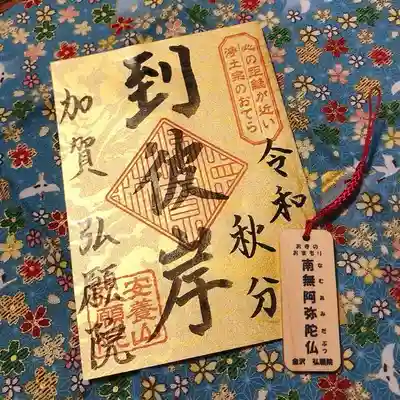 心の距離が近い
浄土宗のおてら
令和
秋分
到彼岸
加賀 弘願院
安養山
お寺の
お守り
南無阿弥陀仏
なむあみだぶつ
金沢 弘願院